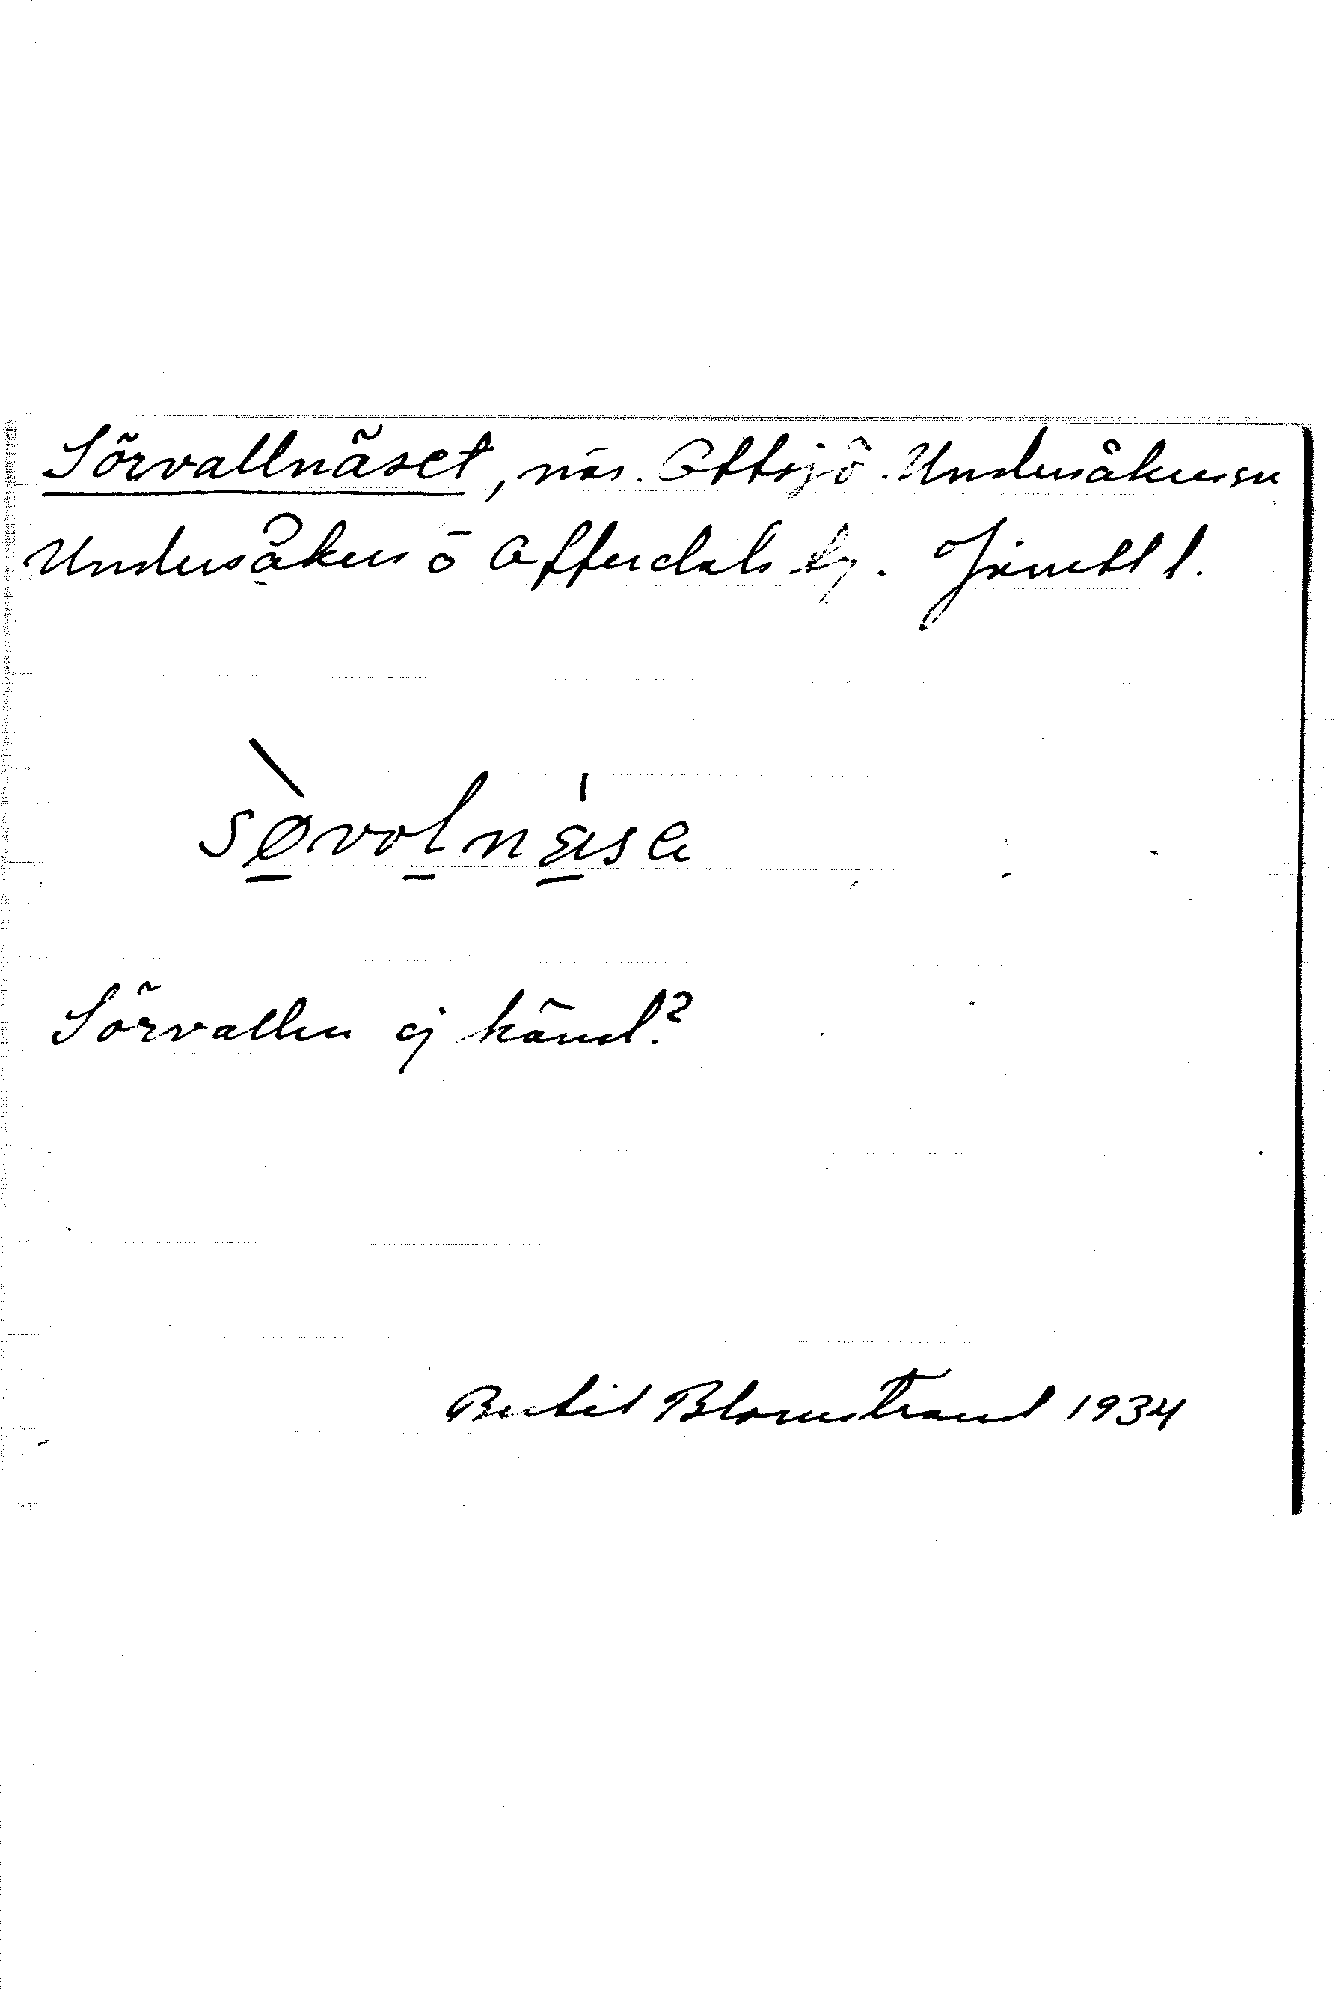 Sörvallnäset, näs. Ottsjö. Undersåkers sn
Undersåkers o Offerdals tg. Jämtl l.
sø̀vo̲lnä̲́sɐ
Sörvallen ej känd.?
Bertil Blomstrand 1934